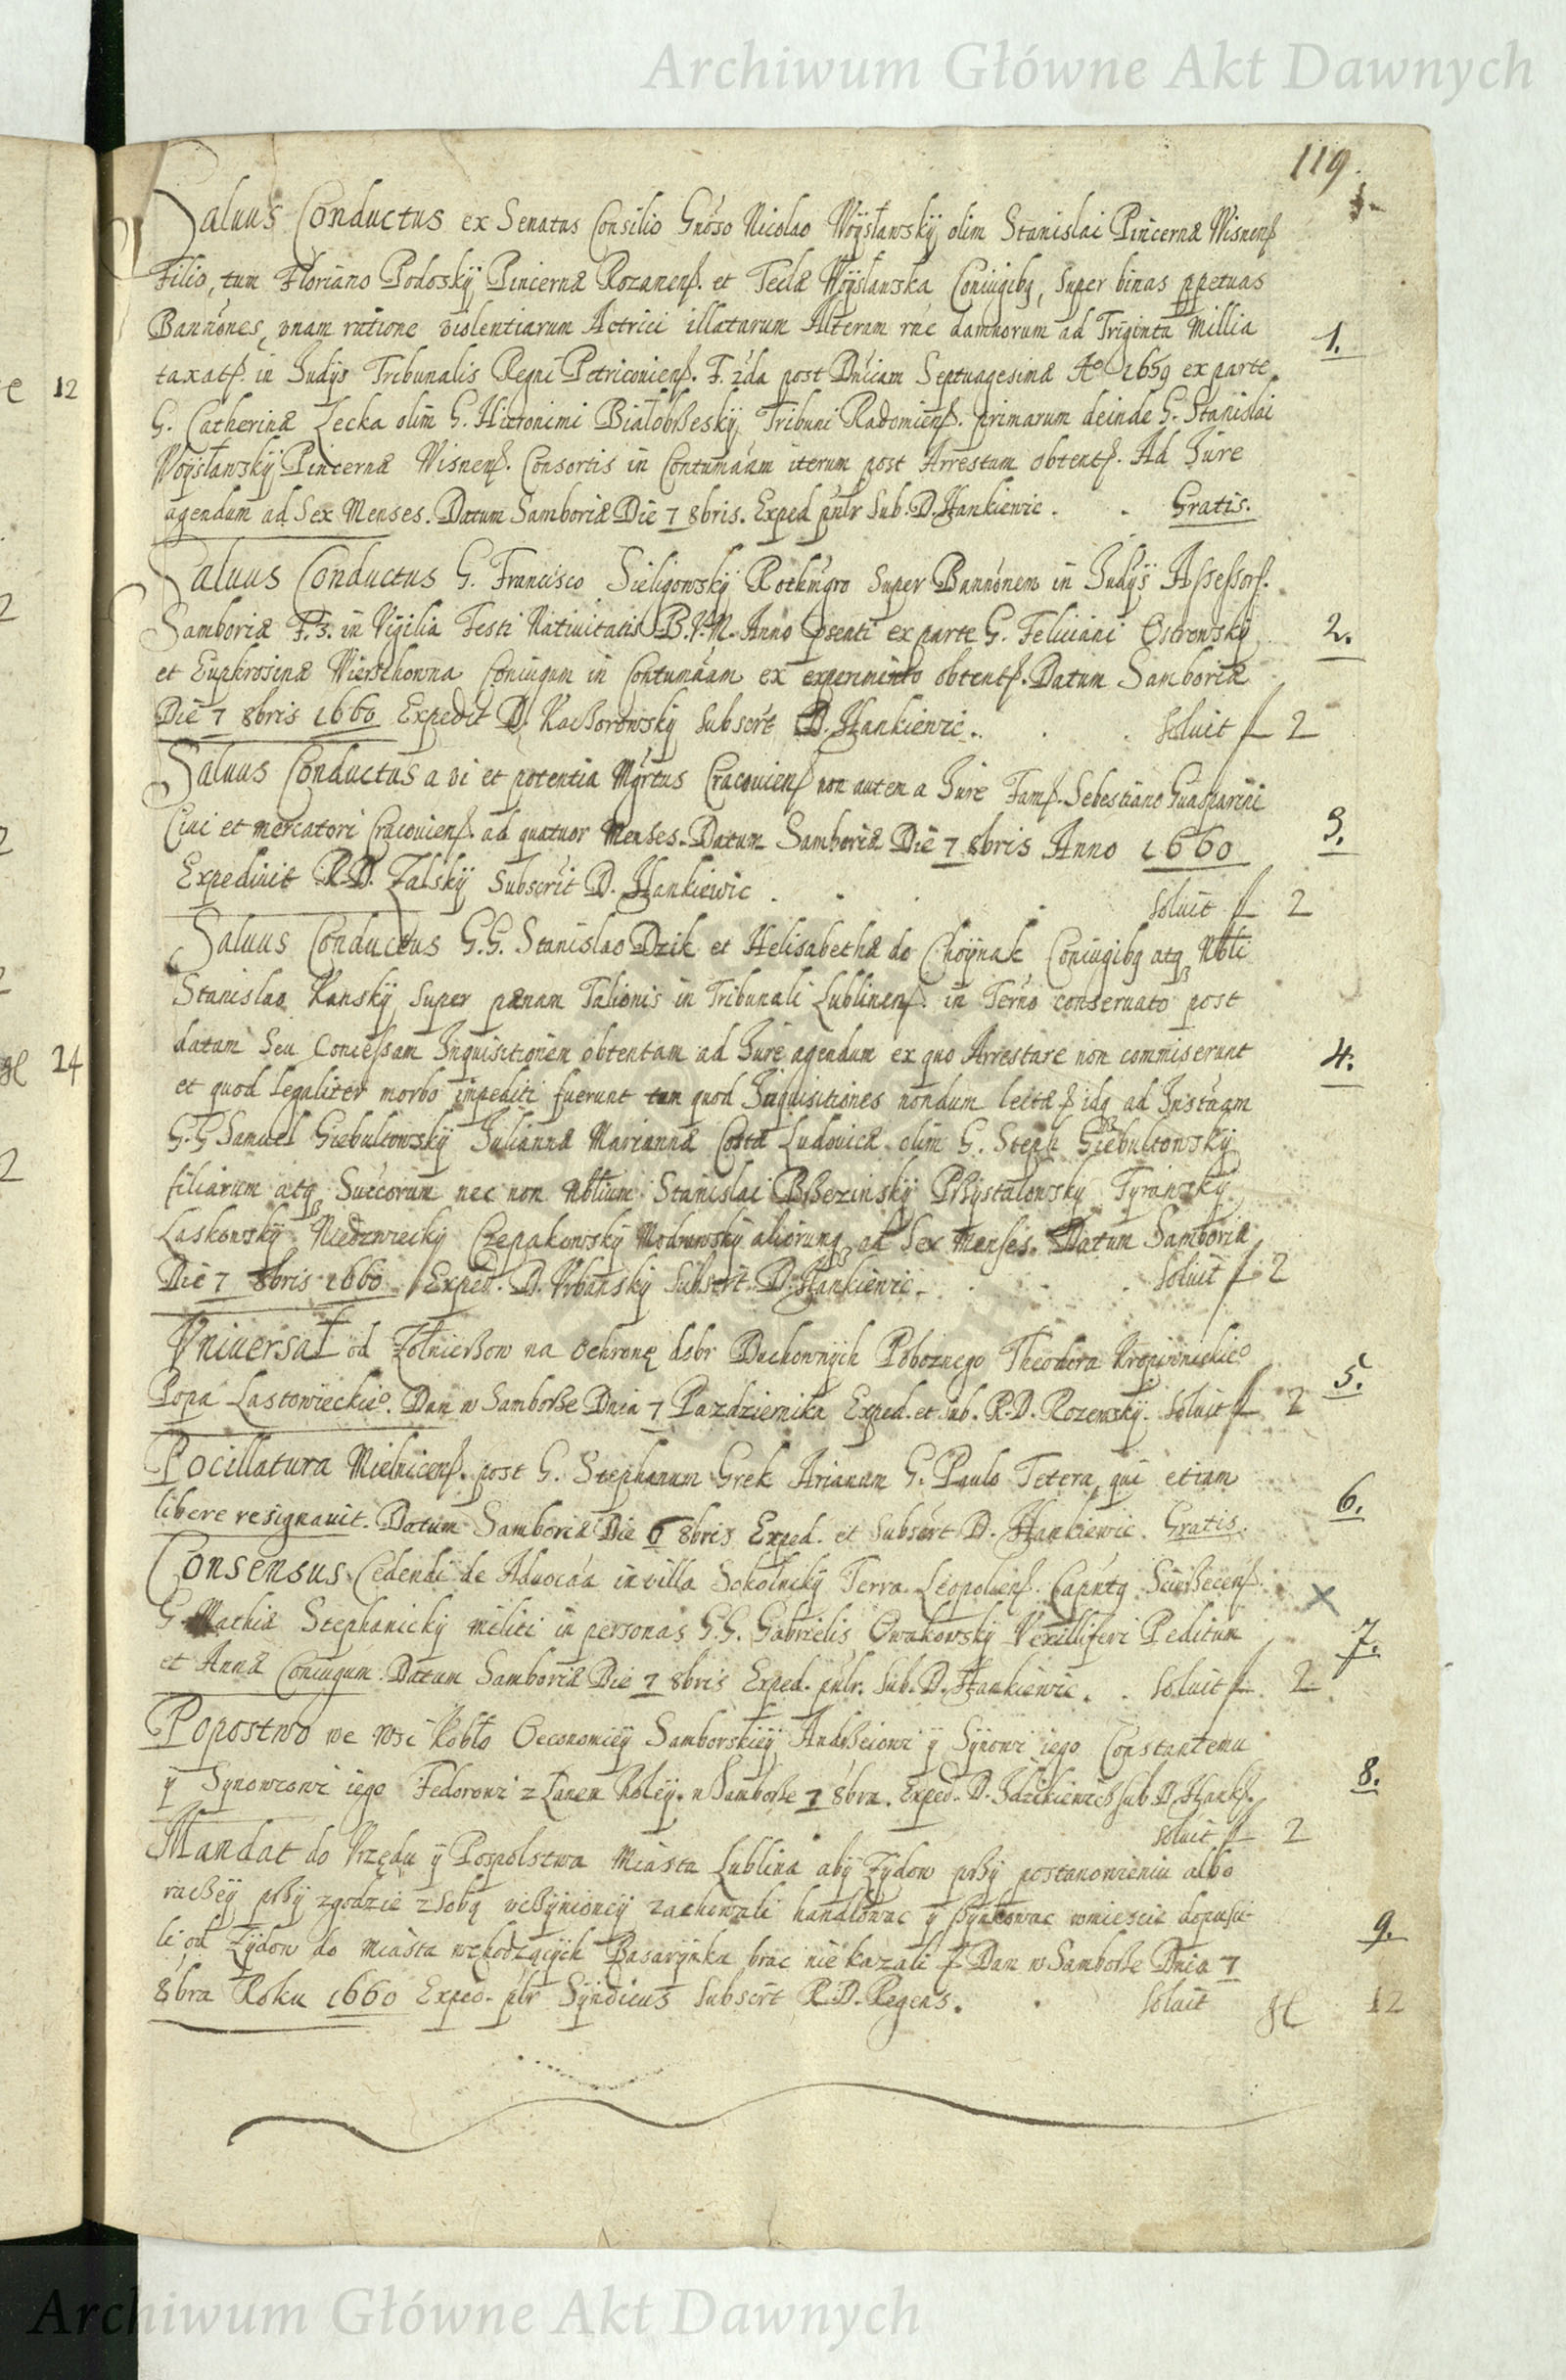 Archiwum Główne Akt Dawnych
119.
Saluus Conductus ex Senatus Consilio Gnoso Nicolao Woysławsky olim Stanislai Pincernæ Wisnenß
Filio, tum Floriano Podosky Pincernæ Rozanenß. et Teclæ Woysławska Coniugibq, super binas ppetuas
Bannones, vnam ratione violentiarum Actrici illatarum Alteram rne damnorum ad Triginta Millia 1.
taxatß. in Judys Tribunalis Regni Petriconienß. F. 2da post Dnicam Septuagesimæ Ao 1659 ex parte
e 12
G. Catherinæ Zecka olim G. Hieronimi Białobrßesky Tribuni Radomienß. primarum deinde G. Stanislai
Woysławsky Pincernæ Wisnenß. Consortis in Contumaam iterum post Arrestum obtentß. Ad Jure
agendum ad Sex Menses. Datum Samboriæ Die 7 8bris. Exped pnlr Sub. D. Hankiewic. Gratis.
Saluus Conductus G. Francisco Sieligowsky Rothmgro Super Bannonem in Judys Assessorß.
Samboriæ F. 3. in Vigilia Festi Natiuitatis B.V.M. Anno psenti ex parte G. Feliciani Ostrowsky 2.
et Euphrosinæ Wierzchowna Coniugum in Contumaam ex experimento obtentß. Datum Samboriæ
Die 7 8bris 1660 Expedit D. Kaßorowsky Subscrt D. Hankiewic. soluit f 2
Saluus Conductus a vi et potentia Mgrtus Cracouienß non autem a Jure Famß. Sebestiano Guasparini
Ciui et mercatori Cracouienß. ad quatuor Menses. Datum Samboriæ Die 7 8bris Anno 1660 3.
Expediuit R.D. Zalsky Subscrit D. Hankiewic. soluit f 2
Saluus Conductus G.G. Stanislao Dzik et Helisabethæ de Choynak Coniugibq atq Nbli
Stanislao Kansky super pænam Talionis in Tribunali Lublinenß. in Terno conseruato post
datam seu Concessam Inquisitionem obtentam ad Jure agendum ex quo Arrestare non commiserunt 4.
gl 14
et quod legaliter morbo impediti fuerunt tum quod Inquisitiones nondum lectæ ß idq ad Instaam
G.G Samuel Giebultowsky Juliannæ Mariannæ Costæ Ludouicæ olim G. Steph Giebultowsky
filiarum atq Succorum nec non Nblium Stanislai Brßezinsky Prßystalowsky Tyrawsky
Laskowsky Niedzwiecky Czepakowsky Modrzewsky aliorumq ad Sex Menses. Datum Samboriæ
Die 7 8bris 1660 Exped. D. Vrbansky Subscrt. D. Hankiewic. soluit f 2
Vniuersał od Żołnierßow na ochronę dobr Duchownych Pobożnego Theodora Kropiwnickieo
Popa Lastowieckieo. Dan w Samborße Dnia 7 Pazdziernika Exped. et sub. R.D. Rozewsky. soluit f 2 5.
Pocillatura Mielnicenß. post G. Stephanum Grek Arianum G. Paulo Tetera, qui etiam
libere resignauit. Datum Samboriæ Die 6 8bris Exped. et Subscrt D. Hankiewic. Gratis. 6.
Consensus Cedendi de Aduocaa in villa Sokolniky Terra Leopolienß. Capntq Scirßecenß.
G. Mathiæ Stephanicky militi in personas G.G. Gabrielis Owakowsky Vexilliferi Peditum 7.
et Annæ Coniugum. Datum Samboriæ Die 7 8bris Exped. pnlr. Sub. D. Hankiewic. soluit f 2
Popostwo we wsi Kobło Oeconomiey Samborskiey Andrßeiowi y Synowi iego Constantemu
y Synowcowi iego Fedorowi z Łanem Roley. w Samborße 7 8bra. Exped. D. Idzikiewic sub D. Hankß. 8.
soluit f 2
Mandat do Vrzędu y Pospolstwa Miasta Lublina aby Zydow prßy postanowieniu albo
racßey prßy zgodzie z sobą vcßynioney zachowali handlowac y ßynkowac wmiescie dopusci-
li od Zydow do miasta wchodzących Basarynku brac nie kazali ß Dan w Samborße Dnia 7 9.
8bra Roku 1660 Exped. plr Syndicus Subscrt R.D. Regens. soluit gl 12
Archiwum Główne Akt Dawnych